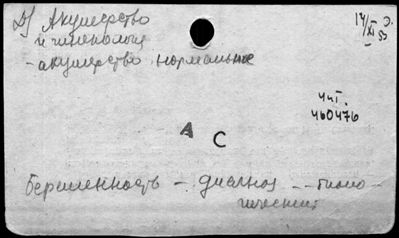 Д) Акушерство
и гинекология
- акушерство нормальное
14/XI 53 Э.
чит.
460476
А С
Беременность - диагноз -- биоло-
гический